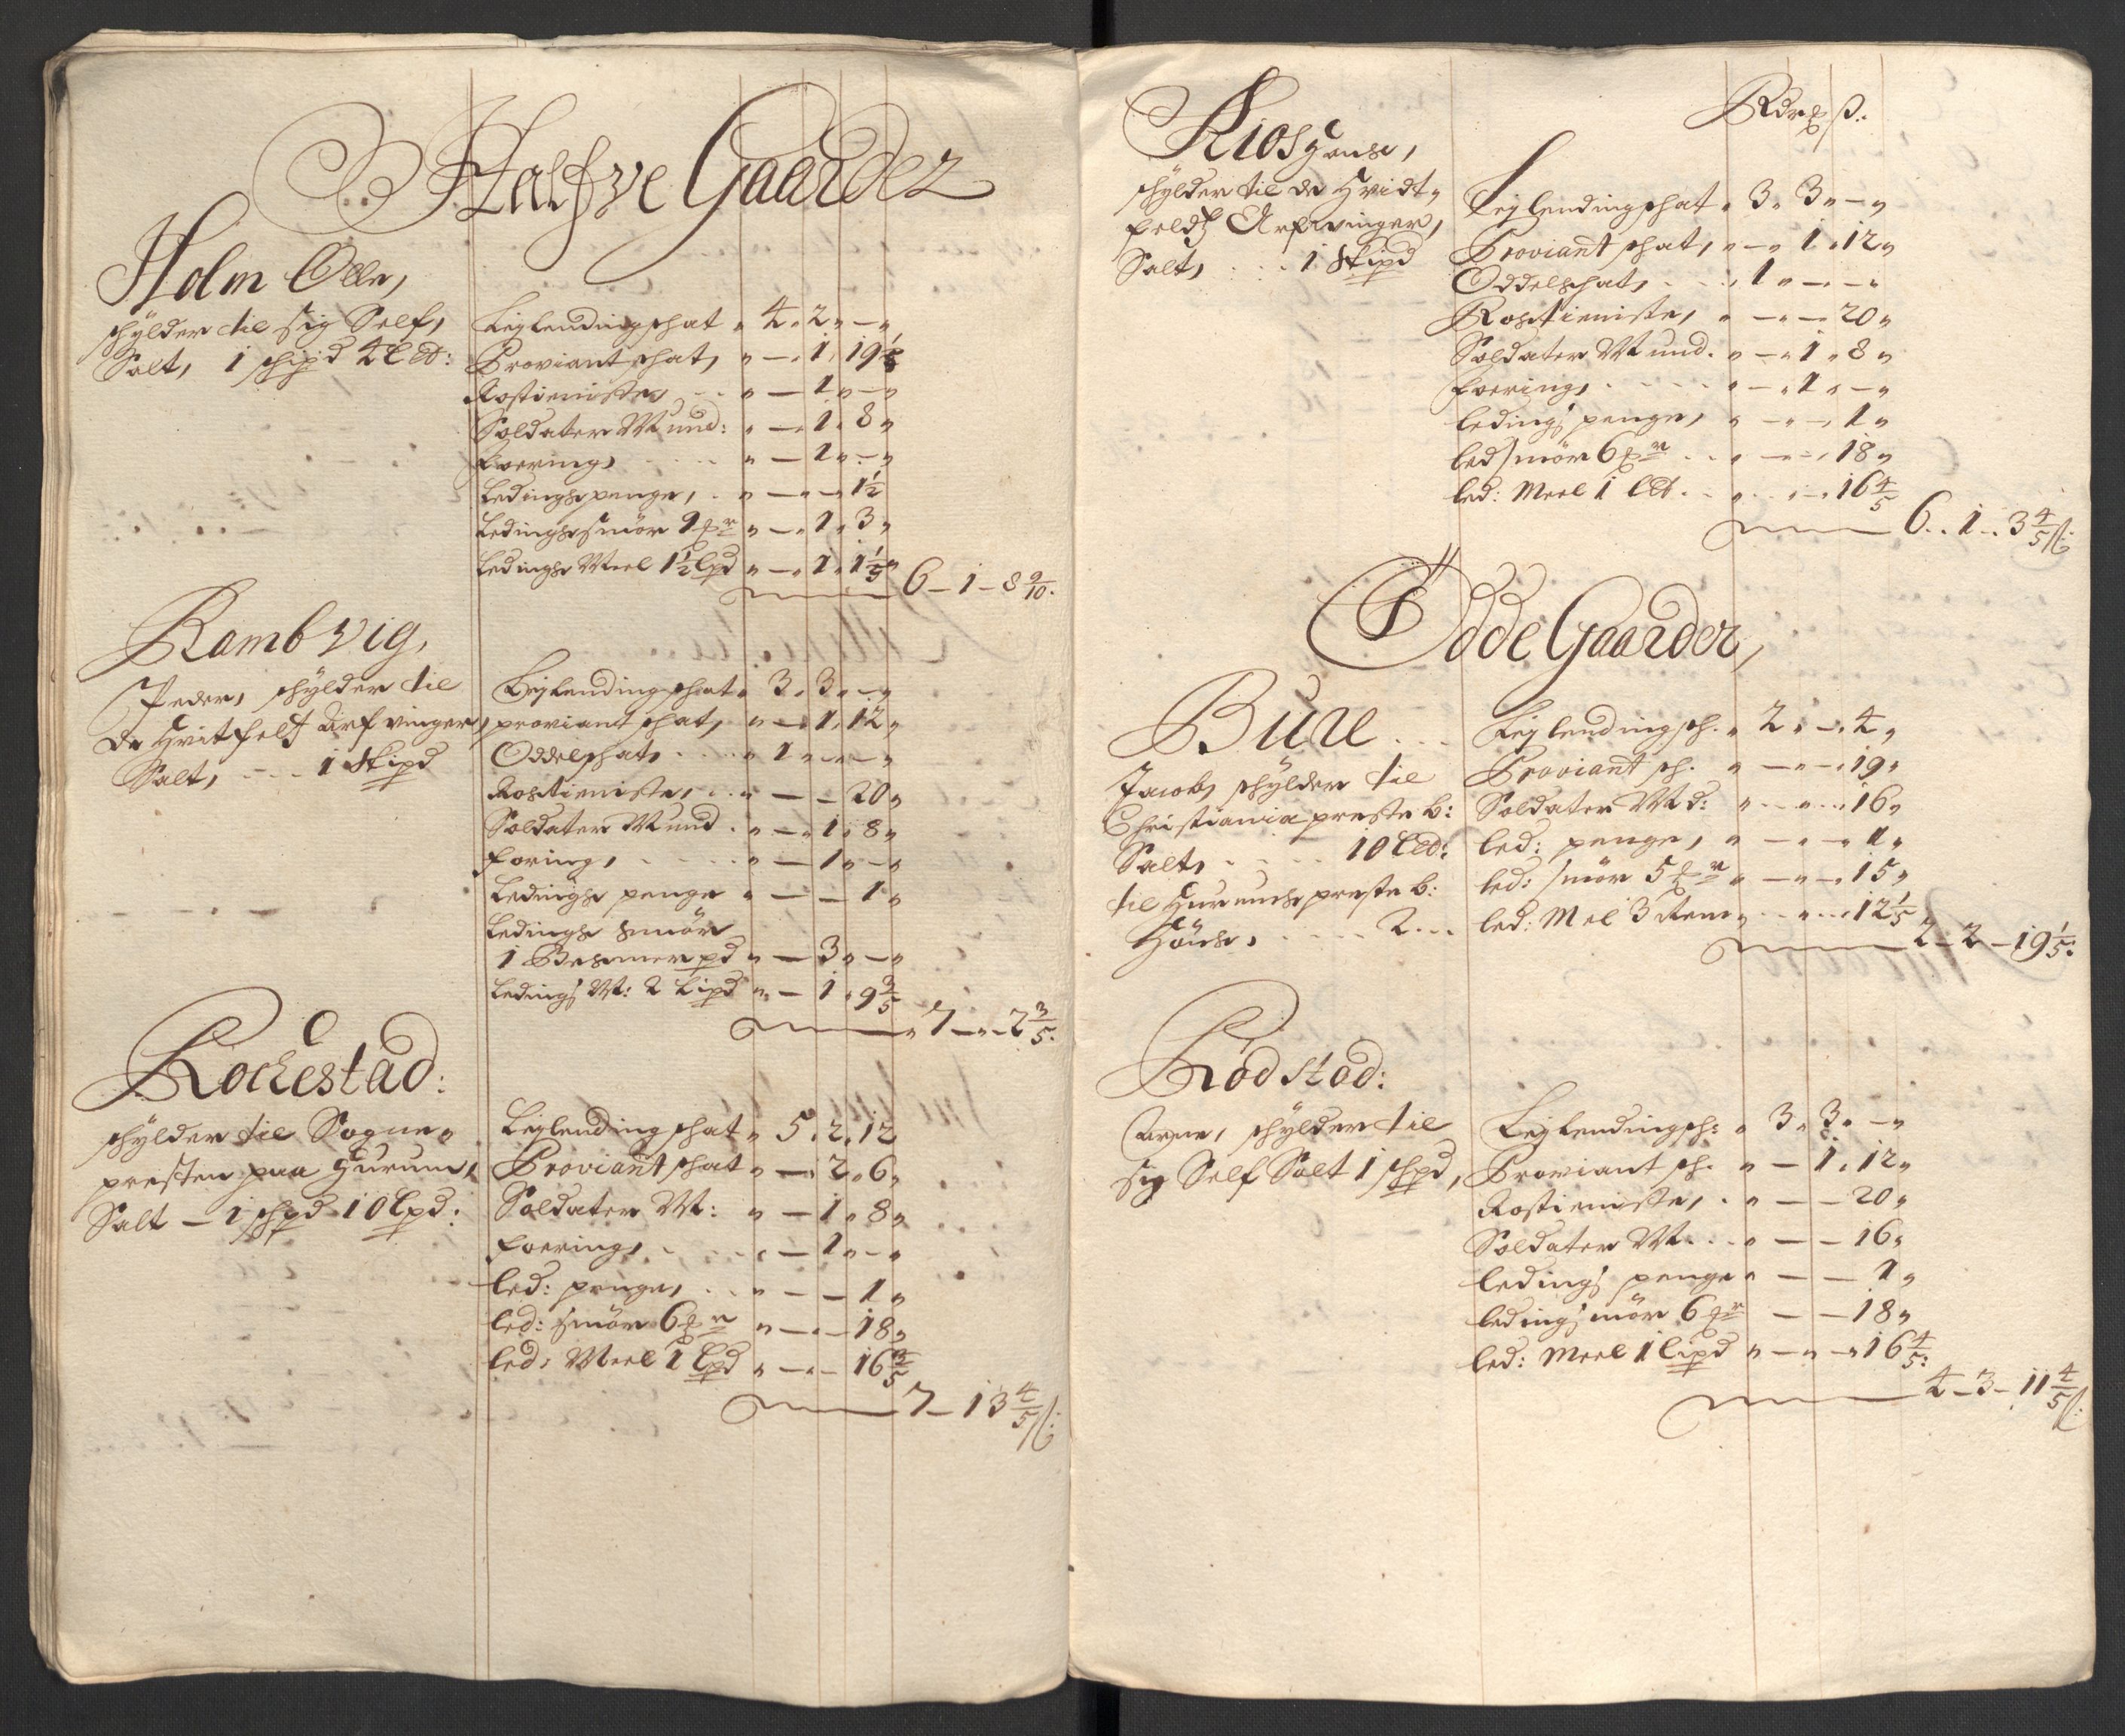 Halfve Gaarder
Holm Olle,
schylder til sig Self,
Salt, 1 schipd 4 Ld:
Leylendingschat " 4 " 2 " — "
Proviant schat, " — " 1 " 19 1/5
Rostieniste, " — 1 " — "
Soldater Mund: " — " 1 " 8 "
Foering, " — 1 " — "
Ledingspenge, " — " — 1 1/2
Ledings smör 9 " — " 1 " 3 "
Ledings Meel 1 1/2 Lpd " — " 1 " 1 1/5
6 — 1 — 8 9/10.
Rambvig,
Peder, schylder til
De Hvitfeltz Arfvinger,
Salt, 1 Skipd
Leylendingschat " 3 " 3 " — "
proviant schat, " — 1 " 12 "
Oddelschat, " 1 " — " — "
Rostieniste, " — — 20 "
Soldater Mund " — " 1 " 8 "
foring, " — 1 " — "
Ledings penge " — — 1 "
Ledings smör
1 Besmerpd " — 3 " — "
Ledings M: 2 Lipd " — 1 " 9 3/5
7 — " — 2 3/5.
Rochestad:
schylder til Sogne-
presten paa Hurum,
Salt — 1 schpd 10 Lpd:
Leylending schat " 5 " 2 " 12
Proviant schat " — " 2 " 6 "
Soldater M: " — 1 " 8 "
Foering, " — 1 " — "
led: penge, " — — 1 "
led: smör 6 " — " — 18 "
led: Meel 1 Lpd " — " — 16 4/5
7 — 13 4/5 ß:
Rdr ß:
Kios Hans,
schylder til de Hvidt-
feldtz Arfvinger,
Salt, 1 Skipd
Leylendingschat " 3 " 3 " — "
Proviant schat, " — " 1 " 12 "
Oddelschat, " 1 " — " — "
Rostieniste, " — " — 20 "
Soldater Mund. " — " 1 " 8 "
Foering, " — " 1 " — "
ledings penge, " — " — 1 "
led smör 6 " — " — 18 "
led: Meel 1 Ld " 16 4/5
6 " 1 " 3 4/5 ß:
Ödde Gaarder,
Bure
Jacob, schylder til
Christiania preste b:
Salt, 10 Ld:
til Hurums preste b:
2
Leylendingsch. " 2 " — " 4 "
Proviant sch. " — " — " 19 "
Soldater Md: " 16 "
led: penge, " — " — 1 "
led: smör 5 " — " — 15 "
led: Mel 3 " 12 1/5
2 — 2 — 19 1/5:
Rödstad:
Arne, schylder til
sig Self Salt 1 schpd,
Leylendingsch: " 3 " 3 " — "
Proviant sch. " — 1 " 12 "
Rostieniste, " — — 20 "
Soldater M. " — — 16 "
ledings penge " — — 1 "
ledings mör 6 — — 18 "
led: Meel 1 Lipd " — " — " 16 4/5:
4 — 3 — 11 4/5 ß: